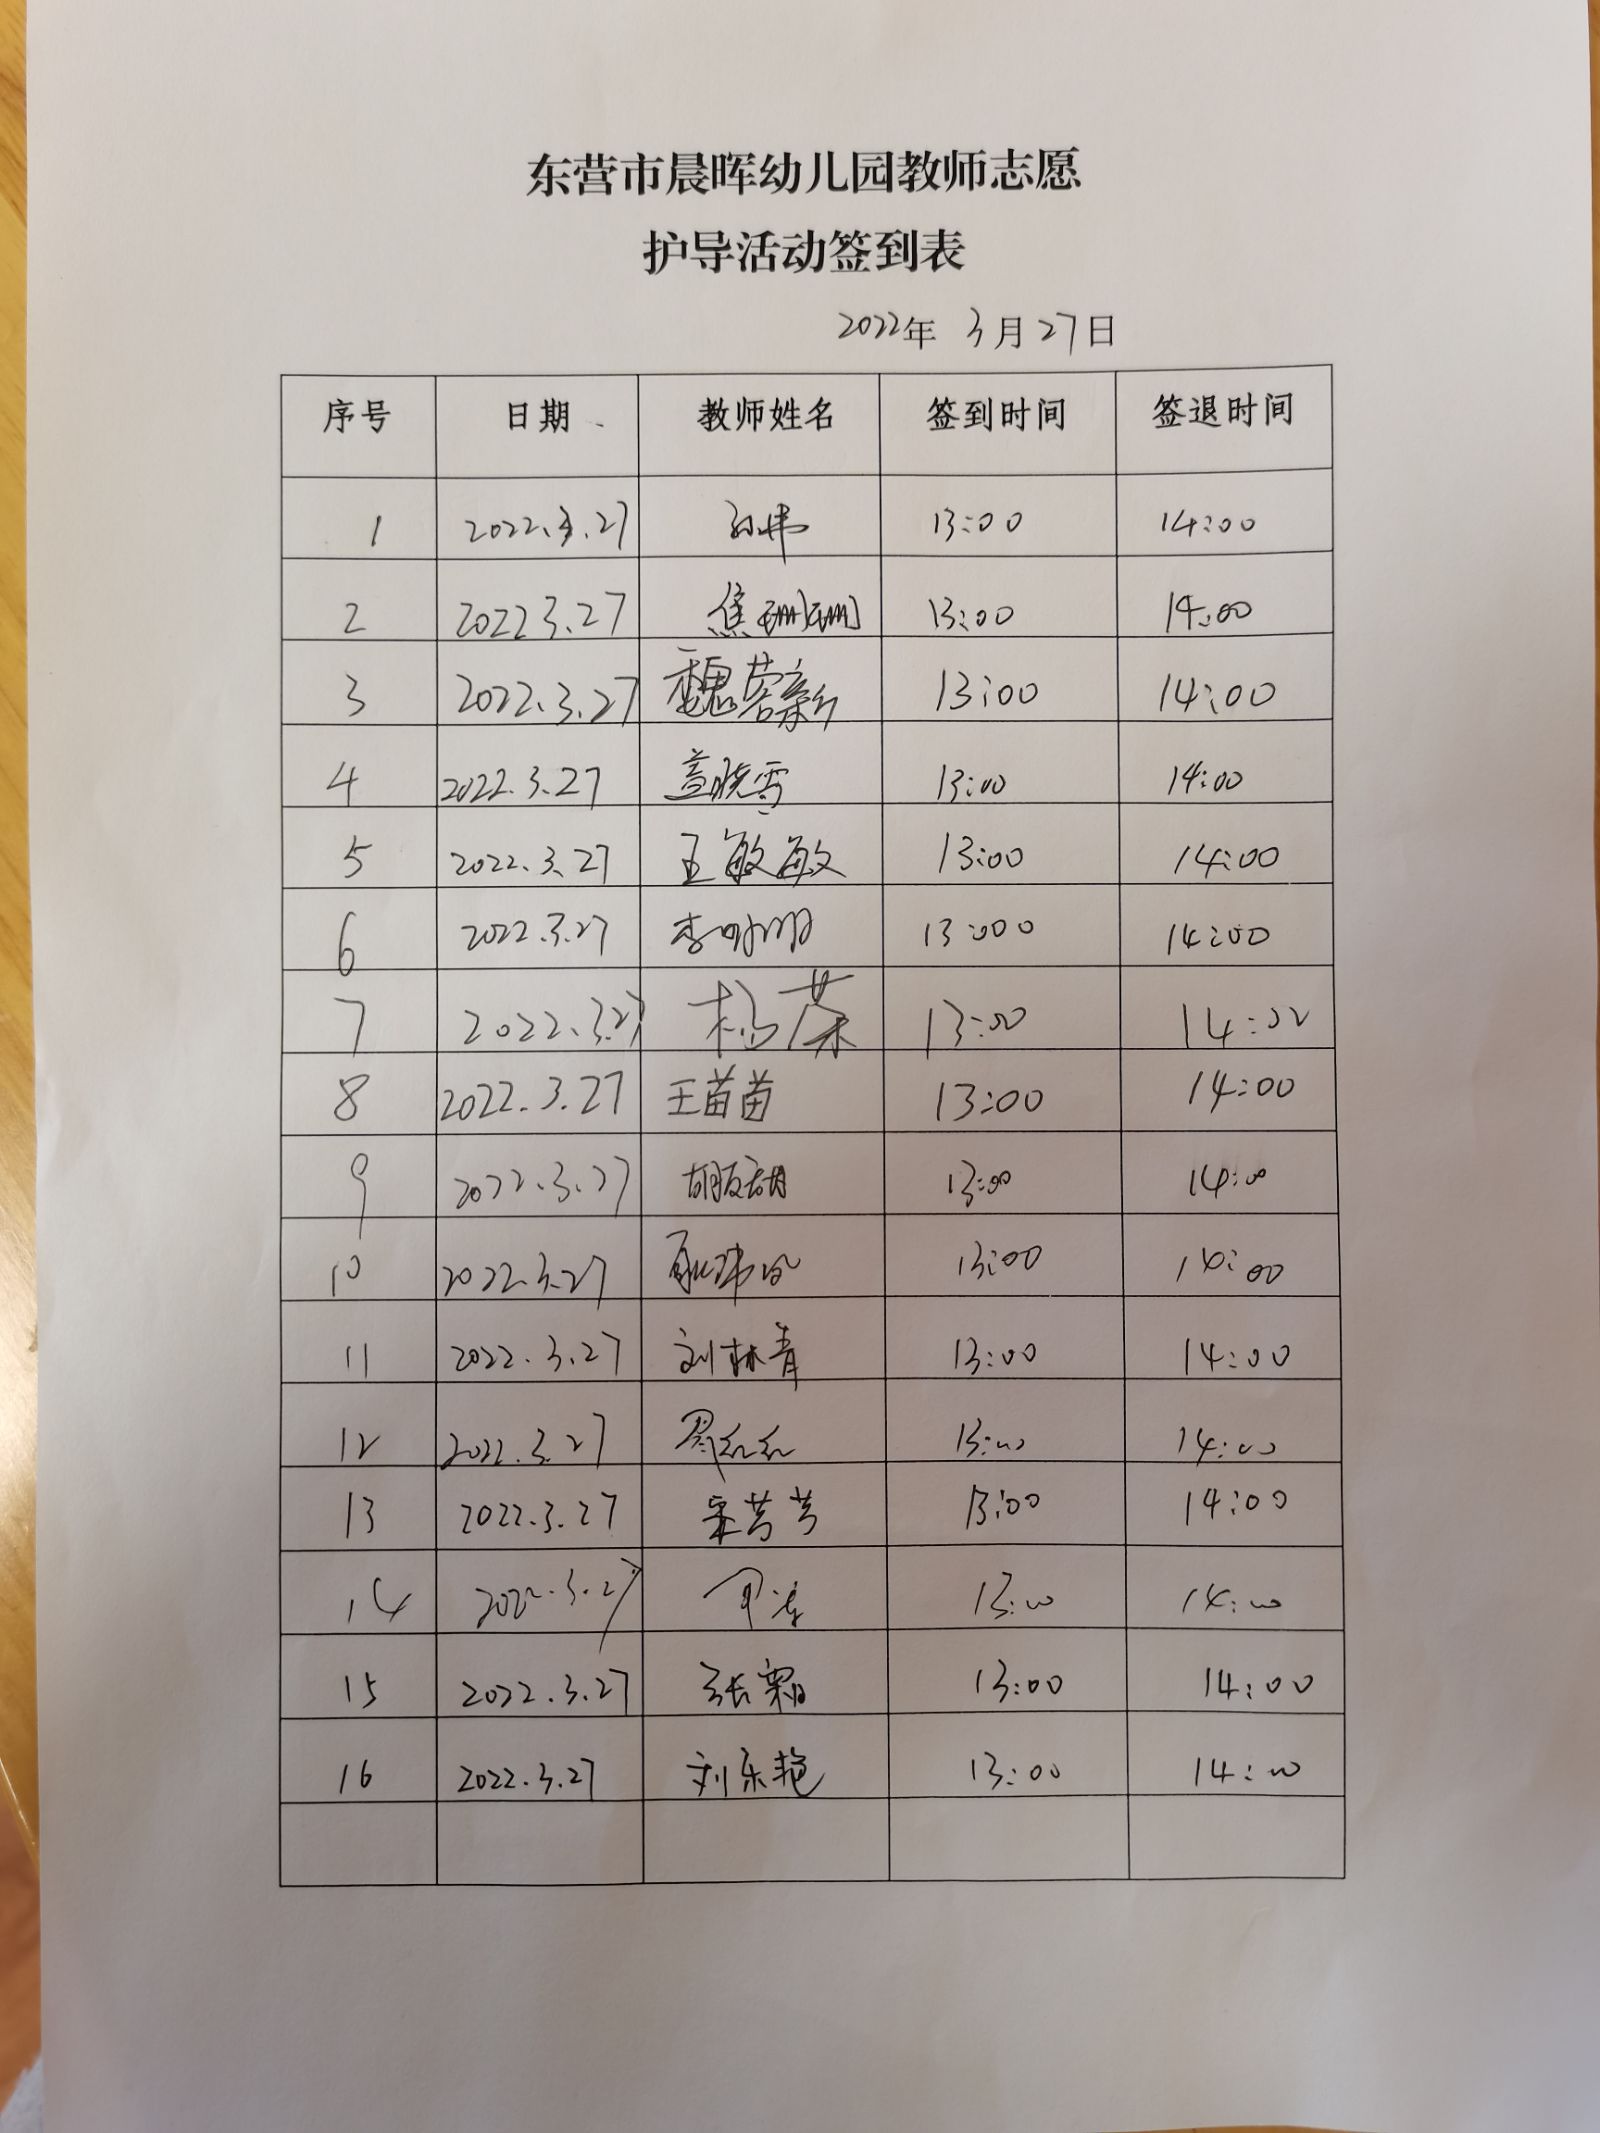 东营市晨晖幼儿园教师志愿
护导活动签到表
2022年 3月27日
序号 日期 教师姓名 签到时间 签退时间
1 2022.3.27 孙伟 13:00 14:00
2 2022 3.27 焦珊珊 13:00 14:00
3 2022.3.27 魏蓉新 13:00 14:00
4 2022.3.27 盖晓雪 13:00 14:00
5 2022.3.27 王敏敏 13:00 14:00
6 2022.3.27 13:000 14:00
7 2022.3.27 杨荣 13:00 14:00
8 2022.3.27 王苗苗 13:00 14:00
9 2022.3.27 13:00 14:00
10 2022.3.27 13:00 14:00
11 2022.3.27 刘林青 13:00 14:00
12 2022.3.27 周红红 13:00 14:00
13 2022.3.27 宋芳芳 13:00 14:00
14 2022.3.27 13:00 14:00
15 2022.3.27 张霜 13:00 14:00
16 2022.3.27 刘东艳 13:00 14:00